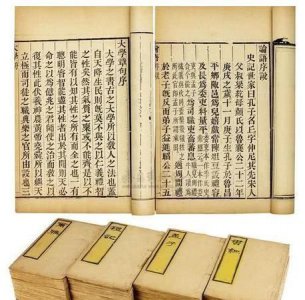 論語序說
史記世家曰孔子名丘字仲尼其先宋人
父叔梁紇母顏氏以魯襄公二十二年
庚戌之歲十一月庚子生孔子於魯昌
平鄉陬邑爲兒嬉戲常陳俎豆設禮容
及長爲委吏料量平
於老子既反而弟子益進昭公二
大學章句序
大學之書古之大學所以教人之法也蓋
自天降生民則既莫不與之以仁義禮智
之性矣然其氣質之稟或不能齊是以不
能皆有以知其性之所有而全之也一有
聰明睿智能盡其性者出於其閒則天必
命之以爲億兆之君師使之治而教之以
復其性此伏羲神農黃帝堯舜所以繼天
立極而司徒之職典樂之官所由設也三
書經
孟子
禮記